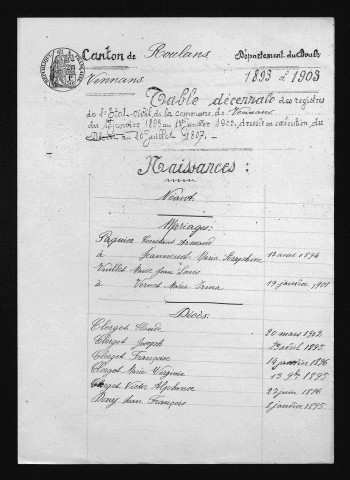 Canton de Roulans
Département du Doubs
Vennans
1893 à 1903
Table décennale des registres
de l'Etat-civil de la commune de Vennans
du 1er janvier 1893 au 1er janvier 1903, dressée en exécution du
Décret du 20 juillet 1807.
Naissances :
Néant.
Mariages :
Paguier Constant Armand
à Jeannenot Marie Josephine 17 avril 1894
Vuillet Marc Jean Louis
à Vernet Maria Irma 19 janvier 1901
Décès :
Clerget Claude 20 mars 1902
Clerget Joseph 23 août 1893
Clerget Françoise 14 janvier 1896
Clerget Marie Virginie 13 9bre 1895
Clerget Victor Alphonse 27 juin 1896
Deny Jean François 8 janvier 1895